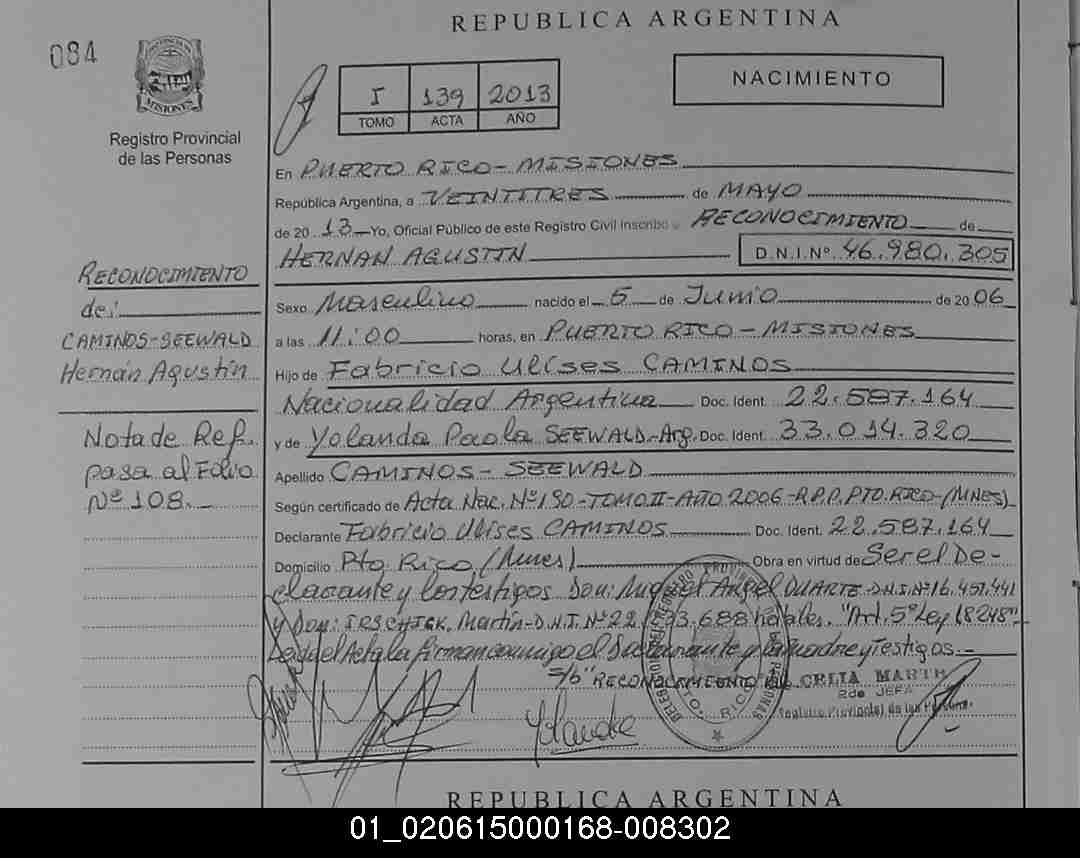 REPUBLICA ARGENTINA
084
MISIONES
Registro Provincial
de las Personas
I 139 2013
TOMO ACTA AÑO
NACIMIENTO
En PUERTO RICO - MISIONES
República Argentina, a VEINTITRES de MAYO
de 2013 Yo, Oficial Público de este Registro Civil Inscribo RECONOCIMIENTO de
HERNAN AGUSTIN D.N.I.Nº 46.980.305
RECONOCIMIENTO
de:
CAMINOS-SEEWALD
Hernán Agustín
Nota de Ref.
pasa al Folio
Nº 108.
Sexo Masculino nacido el 5 de Junio de 2006
a las 11:00 horas, en PUERTO RICO - MISIONES
Hijo de Fabricio Ulises CAMINOS
Nacionalidad Argentina Doc. Ident. 22.587.164
y de Yolanda Paola SEEWALD-Arg. Doc. Ident. 33.014.320
Apellido CAMINOS - SEEWALD
Según certificado de Acta Nac. Nº 190-TOMO II-AÑO 2006-R.P.P. PTO. RICO-(MNES)
Declarante Fabricio Ulises CAMINOS Doc. Ident. 22.587.164
Domicilio Pto Rico (Mnes) Obra en virtud de Ser el De-
clarante y los testigos Don: Miguel Angel DUARTE-D.N.I.Nº 16.457.441
y Don: IRSCHICK, Martín-D.N.I.Nº 22. 93.688 hábiles. "Art. 5º Ley 18248"
Leída el Acta la firman conmigo el Declarante y la madre y Testigos.
S/b "RECONOCIMIENTO
CELIA MARTH
2da JEFA
Registro Provincial de las Personas
Yolanda
PTO. RICO
REPUBLICA ARGENTINA
01_020615000168-008302